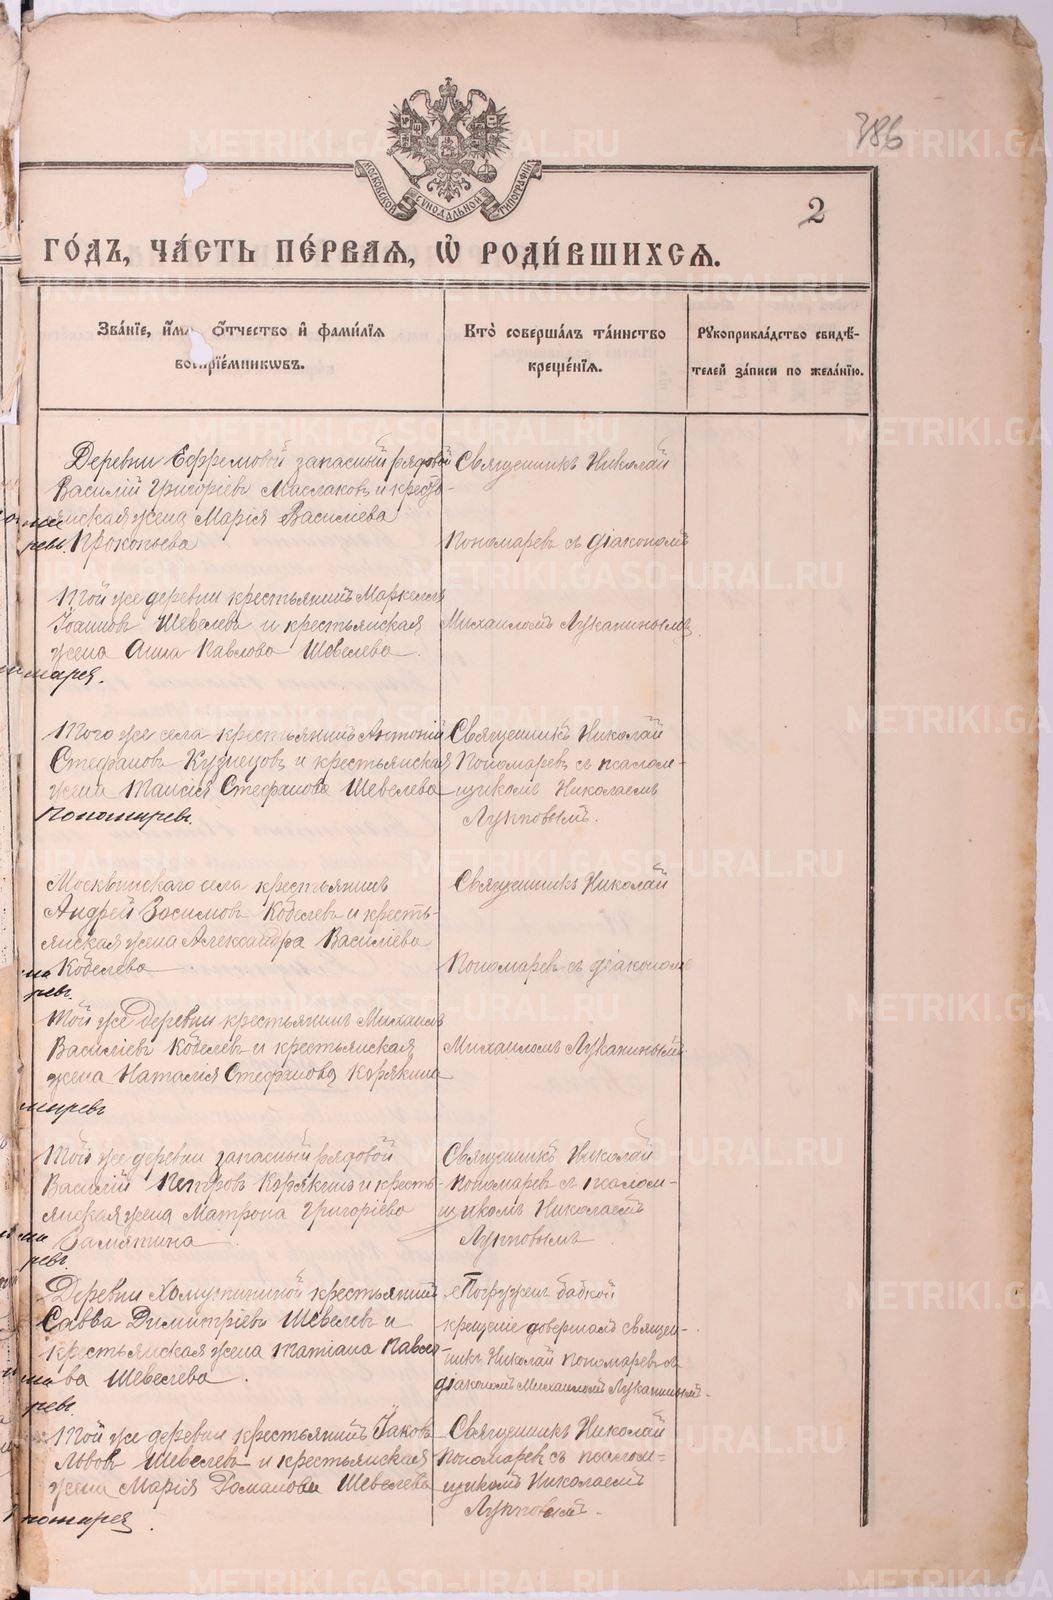 386
МОСКОВСКОЙ СѴНОДАЛЬНОЙ ТИПОГРАФІИ
2
ГО́ДЪ, ЧА́СТЬ ПЕ́РВАЯ, Ѽ РОДИ́ВШИХСѦ.
Зва́нїе, и́мѧ, Ѻ҆́тчество и҆ фами́лїѧ
воспрїе́мникѡвъ.
Кто̀ соверша́лъ та́инство
креще́нїѧ.
Рꙋкоприкла́дство свидѣ́-
телей за́писи по жела́нїю.
Деревни Ефремовой запасный рядовой
Василій Григоріевъ Маслаковъ и кресть-
янская жена Марія Василіева
Прокопьева
Священникъ Николай
Пономаревъ съ діакономъ
Той же деревни крестьянинъ Маркеллъ
Іоанновъ Шевелевъ и крестьянская
жена Анна Павлова Шевелева.
Михаиломъ Луканинымъ.
Того же села крестьянинъ Антоній
Стефановъ Кузнецовъ и крестьянская
жена Таисія Стефанова Шевелева
Пономаревъ.
Священникъ Николай
Пономаревъ съ псалом-
щикомъ Николаемъ
Лупповымъ.
Москвинскаго села крестьянинъ
Андрей Зосимовъ Кобелевъ и кресть-
янская жена Александра Василіева
Кобелева
Священникъ Николай
Пономаревъ съ діакономъ
Той же деревни крестьянинъ Михаилъ
Василіевъ Кобелевъ и крестьянская
жена Наталія Стефанова Корякина
Михаиломъ Луканинымъ.
Той же деревни запасный рядовой
Василій Петровъ Корякинъ и кресть-
янская жена Матрона Григоріева
Замятина
Священникъ Николай
Пономаревъ съ псалом-
щикомъ Николаемъ
Лупповымъ
Деревни Хомутининой крестьянинъ
Савва Димитріевъ Шевелевъ и
крестьянская жена Татіана Павло-
ва Шевелева.
Погруженъ бабкой
крещеніе довершалъ священ-
никъ Николай Пономаревъ съ
діакономъ Михаиломъ Луканинымъ.
Той же деревни крестьянинъ Іаковъ
Львовъ Шевелевъ и крестьянская
жена Марія Романова Шевелева
Священникъ Николай
Пономаревъ съ псалом-
щикомъ Николаемъ
Лупповымъ.
METRIKI.GASO-URAL.RU